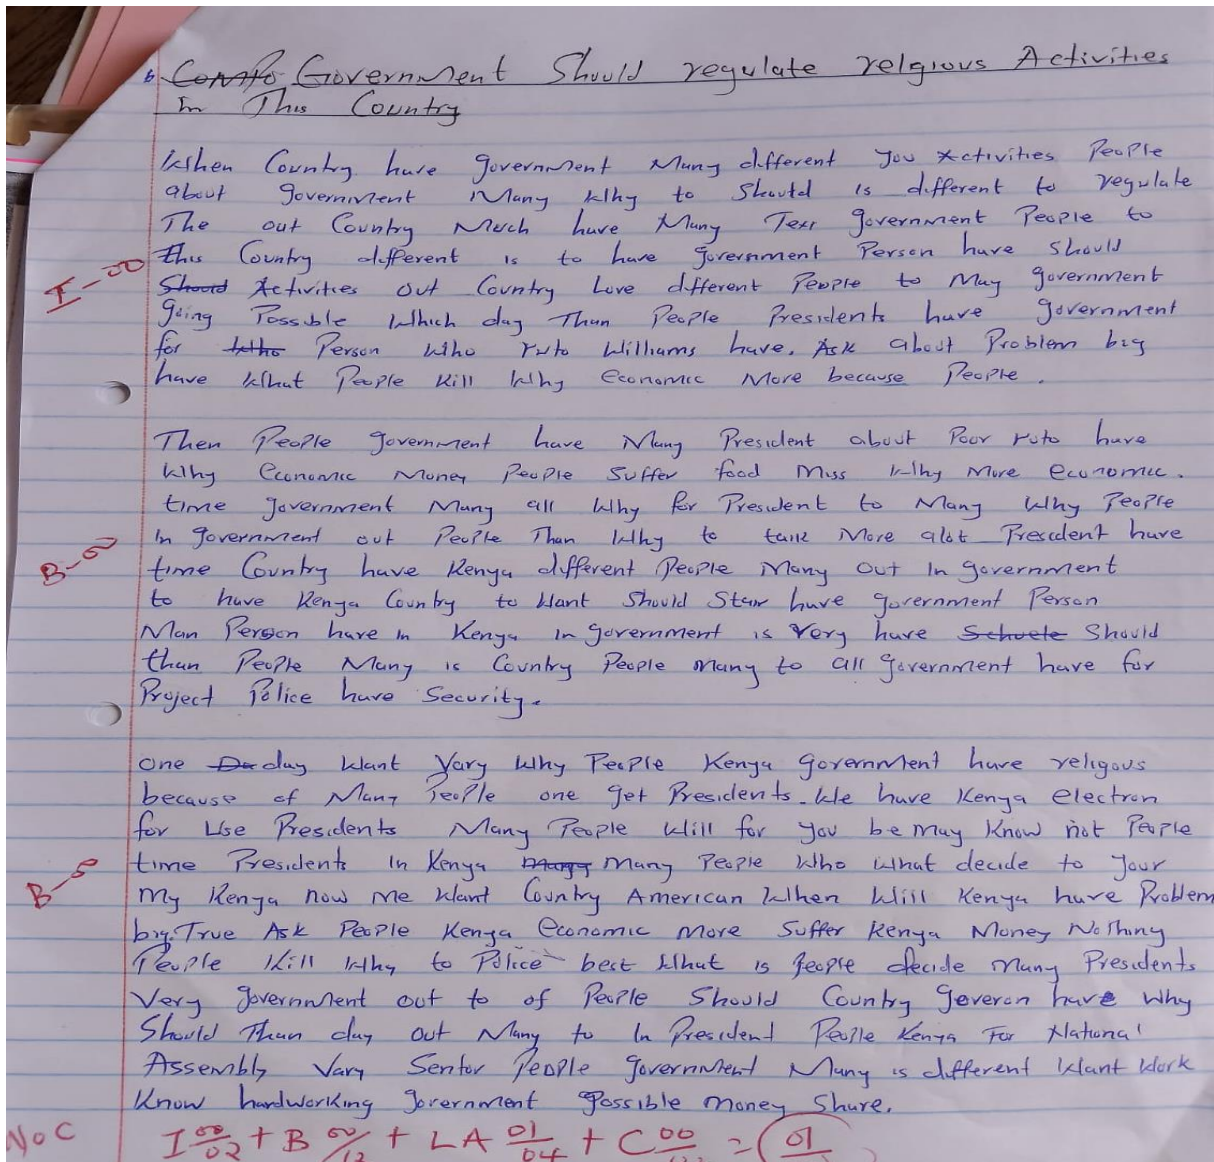 Government Should regulate relgious Activities
In This Country
When Country have government Many different you Activities People
about government Many Why to Should is different to regulate
The out Country Much have Many government People to
this Country different is to have government Person have should
I - 00
Should Activities out Country Love different People to May government
going Possible Which day Than People Presidents have government
for Person Who ruto Williams have. Ask about Problem big
have What People Kill Why economic More because People.
Then People government have Many President about Poor ruto have
Why economic Money People Suffer food Miss Why More economic.
time government Many all Why for President to Many Why People
In government out People Than Why to talk More alot President have
B - 00
time Country have Kenya different People Many Out In government
to have Kenya Country to Want Should have government Person
Man Person have in Kenya in government is Very have Should
than People Many is Country People many to all government have for
Project Police have Security.
One day Want Vary Why People Kenya government have religous
because of Many People one get Presidents. We have Kenya election
for Use Presidents Many People Will for you be may Know not People
time Presidents In Kenya Many People Who What decide to your
B -
My Kenya now me Want Country American When Will Kenya have Problem
big. True Ask People Kenya Economic More Suffer Kenya Money Nothing
People Kill Why to Police best What is People decide Many Presidents
Very government out to of People Should Country have Why
Should Than day out Many to In President People Kenya For National
Assembly Vary Sentor People government Many is different Want Work
Know hardworking government Possible Money Share.
NoC I 00/02 + B 00/12 + LA 01/04 + C 00 = 01